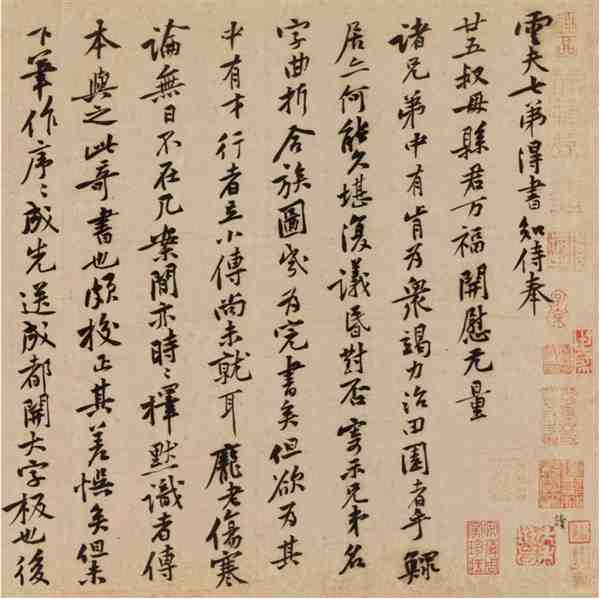 雲夫七弟得書知侍奉
廿五叔母縣君万福開慰无量
諸兄弟中有肯為衆竭力治田園者乎鰥
居亦何能久堪復議昏對否寄示兄弟名
字曲折合族圖幾為完書矣但欲為其
中有才行者立小傳尚未就耳龐老傷寒
論無日不在几案間亦時〻擇默識者傳
本與之此奇書也頗校正其差悮矣但未
下筆作序〻成先送成都開大字板也後